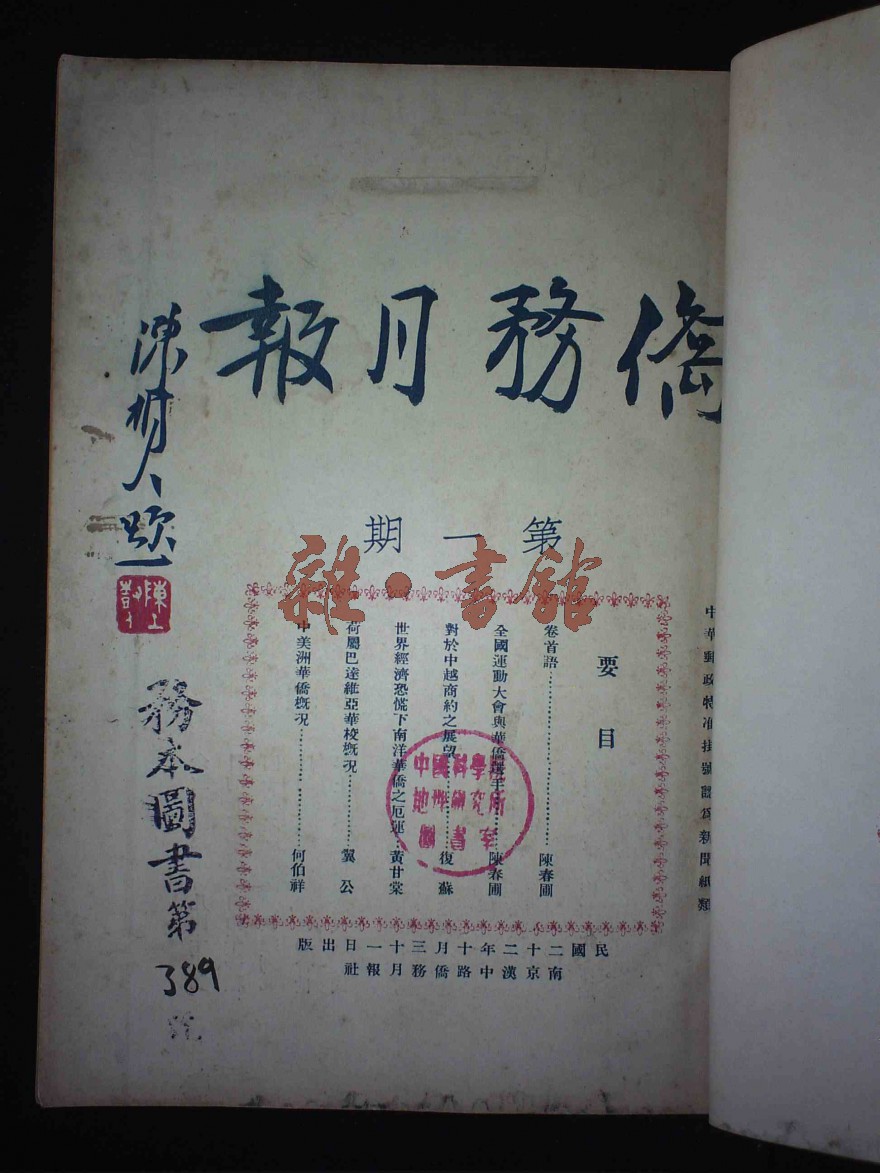 僑務月報
陳樹人題
第一期
雜·書館
中華郵政特准掛號認為新聞紙類
要目
卷首語……陳春圃
全國運動大會與華僑選手……陳春圃
對於中越商約之展望……復蘇
世界經濟恐慌下南洋華僑之厄運…黃甘棠
荷屬巴達維亞華校概況……翼公
中美洲華僑概況……何伯祥
中國科學
地理研究所
圖書
民國二十二年十月三十一日出版
南京漢中路僑務月報社
務本圖書第
389
號